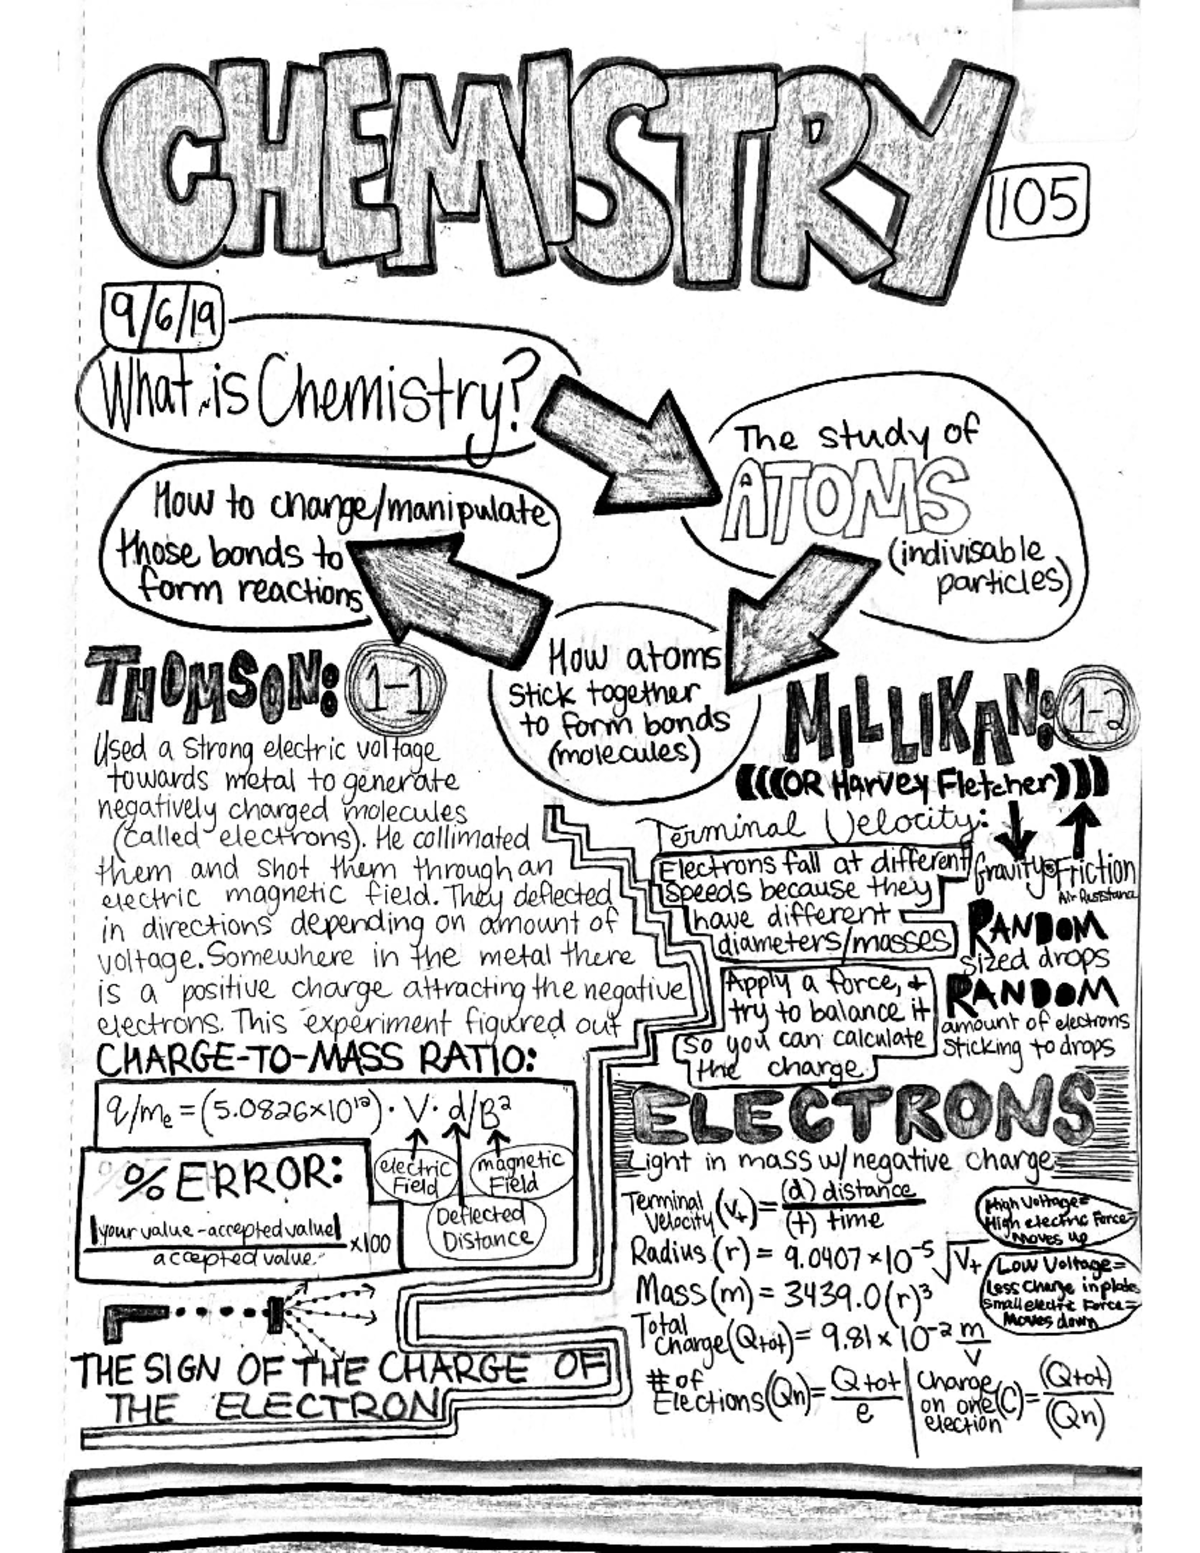 CHEMISTRY
105
9/6/19
What is Chemistry?
The study of
ATOMS
(indivisable
particles)
How atoms
stick together
to form bonds
(molecules)
How to change/manipulate
those bonds to
form reactions
THOMSON: 1-1
Used a strong electric voltage
towards metal to generate
negatively charged molecules
(called electrons). He collimated
them and shot them through an
electric magnetic field. They deflected
in directions depending on amount of
voltage. Somewhere in the metal there
is a positive charge attracting the negative
electrons. This experiment figured out
CHARGE-TO-MASS RATIO:
q/me = (5.0826×10¹²) · V · d/B²
electric
Field
magnetic
Field
Deflected
Distance
% ERROR:
|your value - accepted value|
accepted value
×100
THE SIGN OF THE CHARGE OF
THE ELECTRON
MILLIKAN: 1-2
(((OR Harvey Fletcher)))
Terminal Velocity:
Electrons fall at different
speeds because they
have different
diameters/masses
Gravity & Friction
Air Resistance
RANDOM
sized drops
RANDOM
amount of electrons
sticking to drops
Apply a force, +
try to balance it
so you can calculate
the charge
ELECTRONS
Light in mass w/negative charge
Terminal Velocity (v+) = (d) distance
(t) time
Radius (r) = 9.0407×10⁻⁵ √V+
Mass (m) = 3439.0(r)³
Total Charge (Qtot) = 9.81×10⁻² m
V
# of Elections (Qn) = Qtot
e
Charge on one election (C) = (Qtot)
(Qn)
High Voltage=
High electric Force=
Moves up
Low Voltage=
Less Charge in plates
Small electric Force=
Moves down